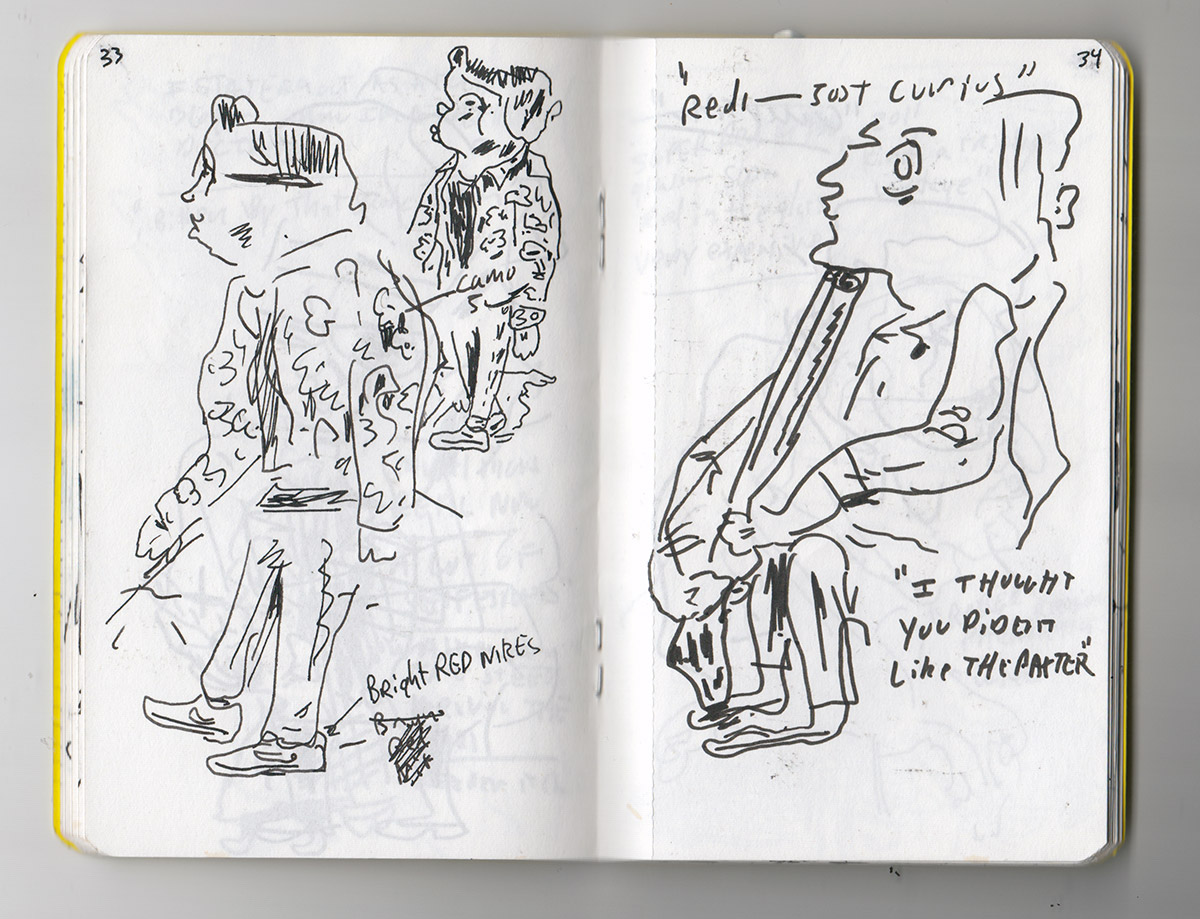 33
camo
Bright RED NIKES
34
"Redi — Just Curius"
"I THUUHT
YUU DiDENT
Like THEPASTER"